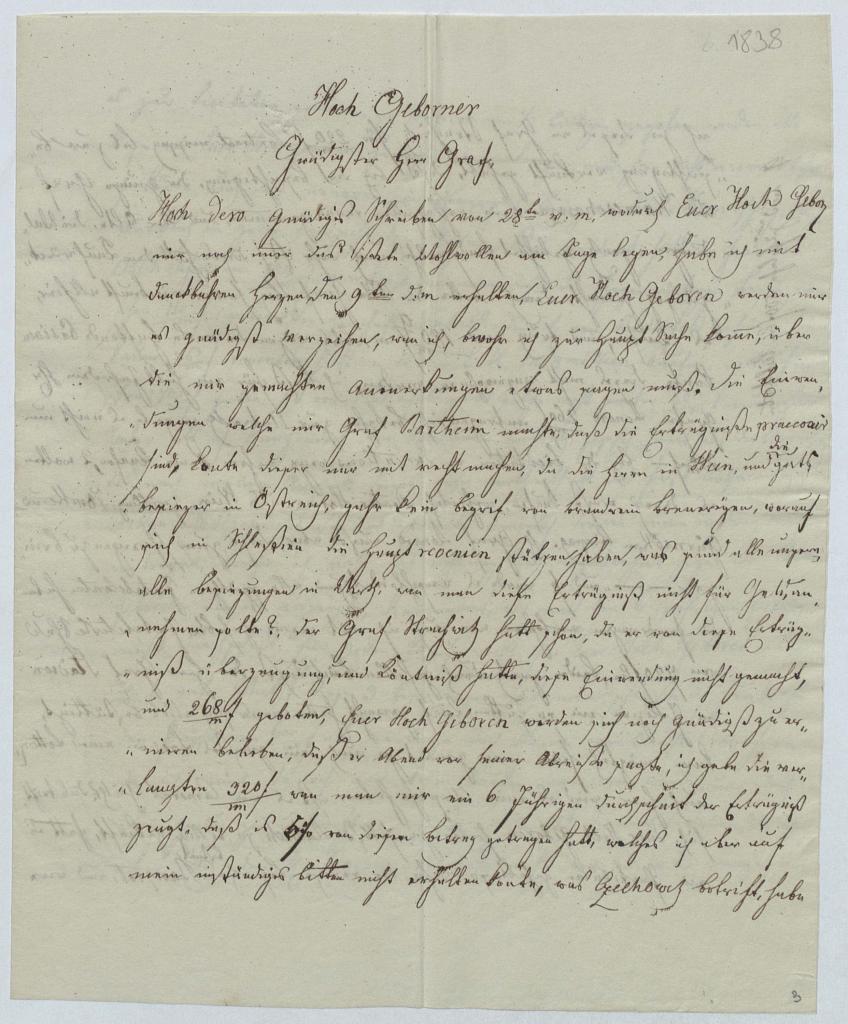 1838
Hoch Geborner
Gnädigster Herr Graf.
Hoch dero gnädiges Schreiben von 28te v. m. wodurch Euer Hoch Gebor
mir noch imer das Wohlwollen am Tage legen, habe ich mit
danckbahren Herzen den 9ten d. m erhalten, Euer Hoch Geboren werden mir
es gnädigst verzeihen, wan ich, bevohr ich zur Haupt Sache kome, über
die mir gemachten Anmerkungen etwas sagen muß. Die Einwen,
dungen welche mir Graf Bartheim machte, daß die Erträgniße praecair
sind, konte dieser mir mit recht machen, da die Herrn in Wien, und die guts
besiezer in Östreich, gahr kein begrif von brandwein brenereyen, worauf
sich in Schlesien die Haupt revenien stützen, haben, was sind alle unsere,
alle besiezungen in Werth, wan man diese Erträgniß nicht für Geld an,
nehmen solte?, der Graf Strachwitz hatt schon, da er von diese Erträg,,
niß überzeugung, und Käntniß hatte, diese Einwendung nicht gemacht,
und 268/m f geboten, Euer Hoch Geboren werden sich noch gnädigst zu er,,
ineren belieben, daß er Abend vor seiner Abreise sagte, ich gebe die ver,,
langten 320/m f wan man mir ein 6 Jährigen durchschnit der Erträgniß
zeugt, daß es 5% von diesem betrag getragen hatt, welches ich aber auf
mein inständiges bitten nicht erhalten konte, was betrift, habe
3